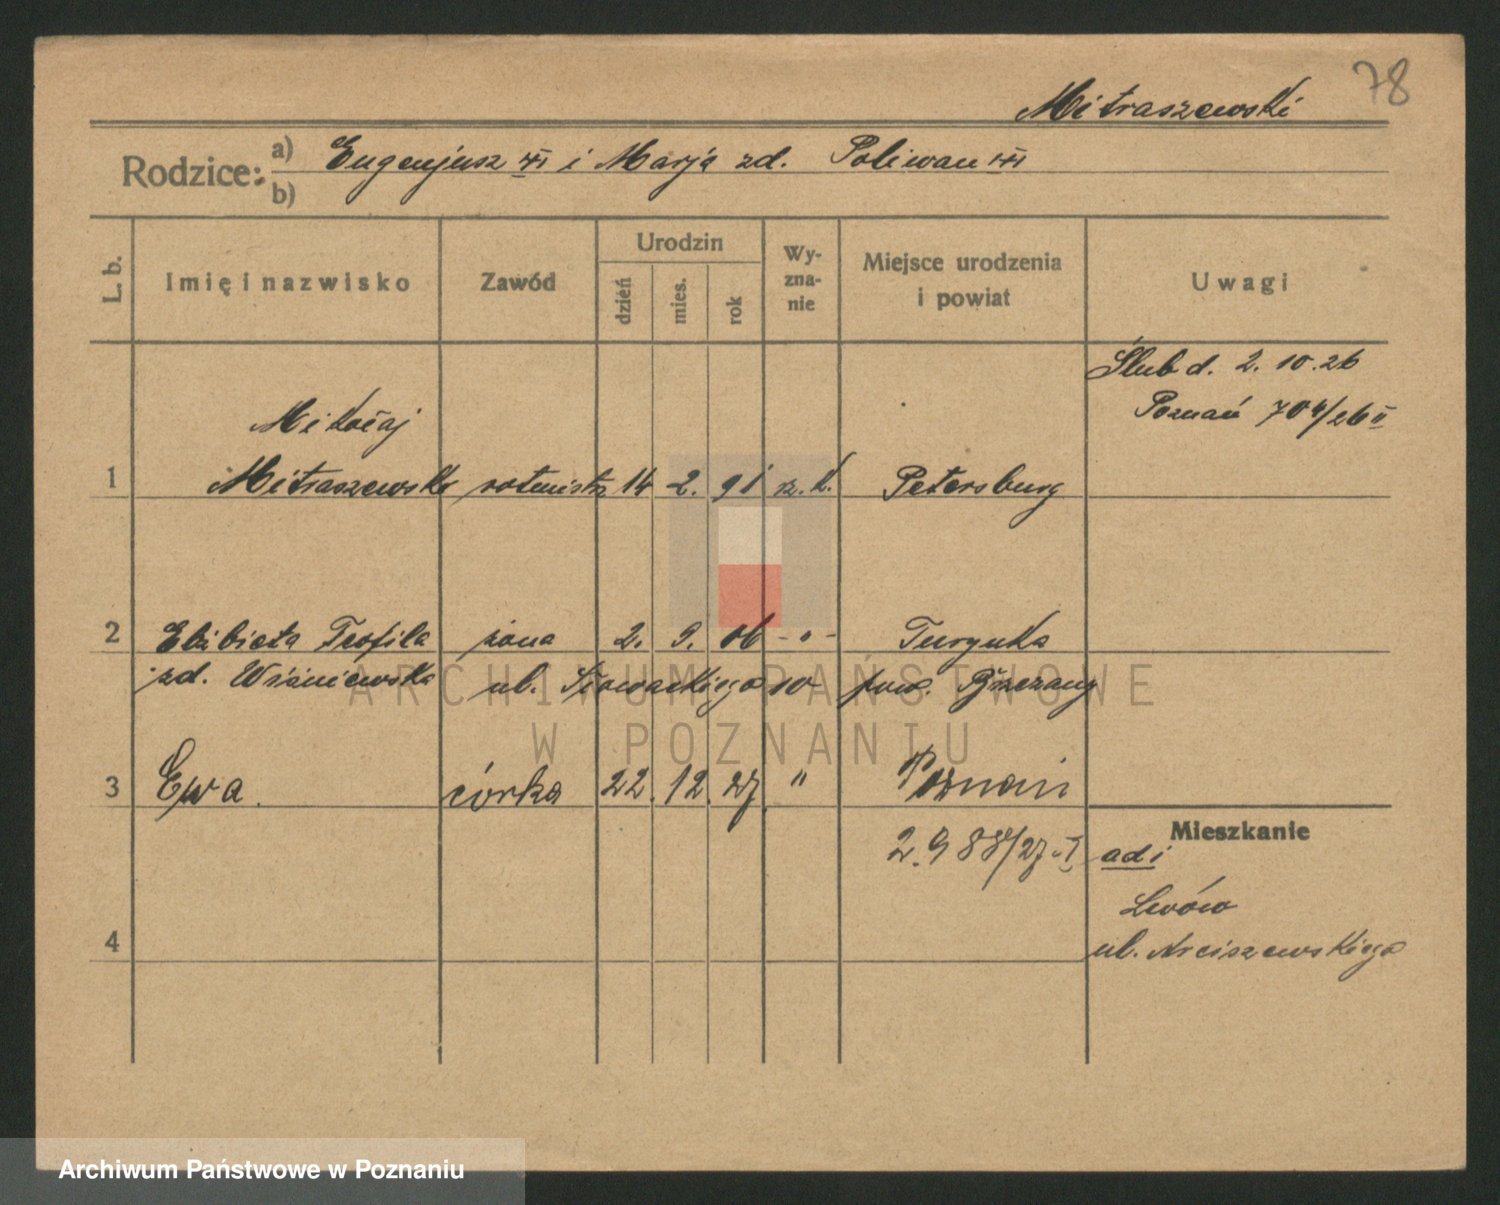 78
Mitraszewski
Rodzice: a) Eugenjusz i Marja zd. Poliwan
b)
L. b. Imię i nazwisko Zawód Urodzin dzień mies. rok Wy-zna-nie Miejsce urodzenia i powiat Uwagi
Ślub d. 2. 10. 26
Poznań 704/26 II
Mikołaj
1 Mitraszewski rotmistrz 14 2. 91 rz. k. Petersburg
2 Elżbieta Teofila żona 2. 9. 06 - " - Turynka
zd. Wiśniewska ul. Słowackiego 10 pow. Brzezany
3 Ewa. córka 22. 12. 27 " Poznań
Mieszkanie
2988/27. I adi
Lwów
4 ul. Arciszewskiego
ARCHIWUM PAŃSTWOWE
W POZNANIU
Archiwum Państwowe w Poznaniu